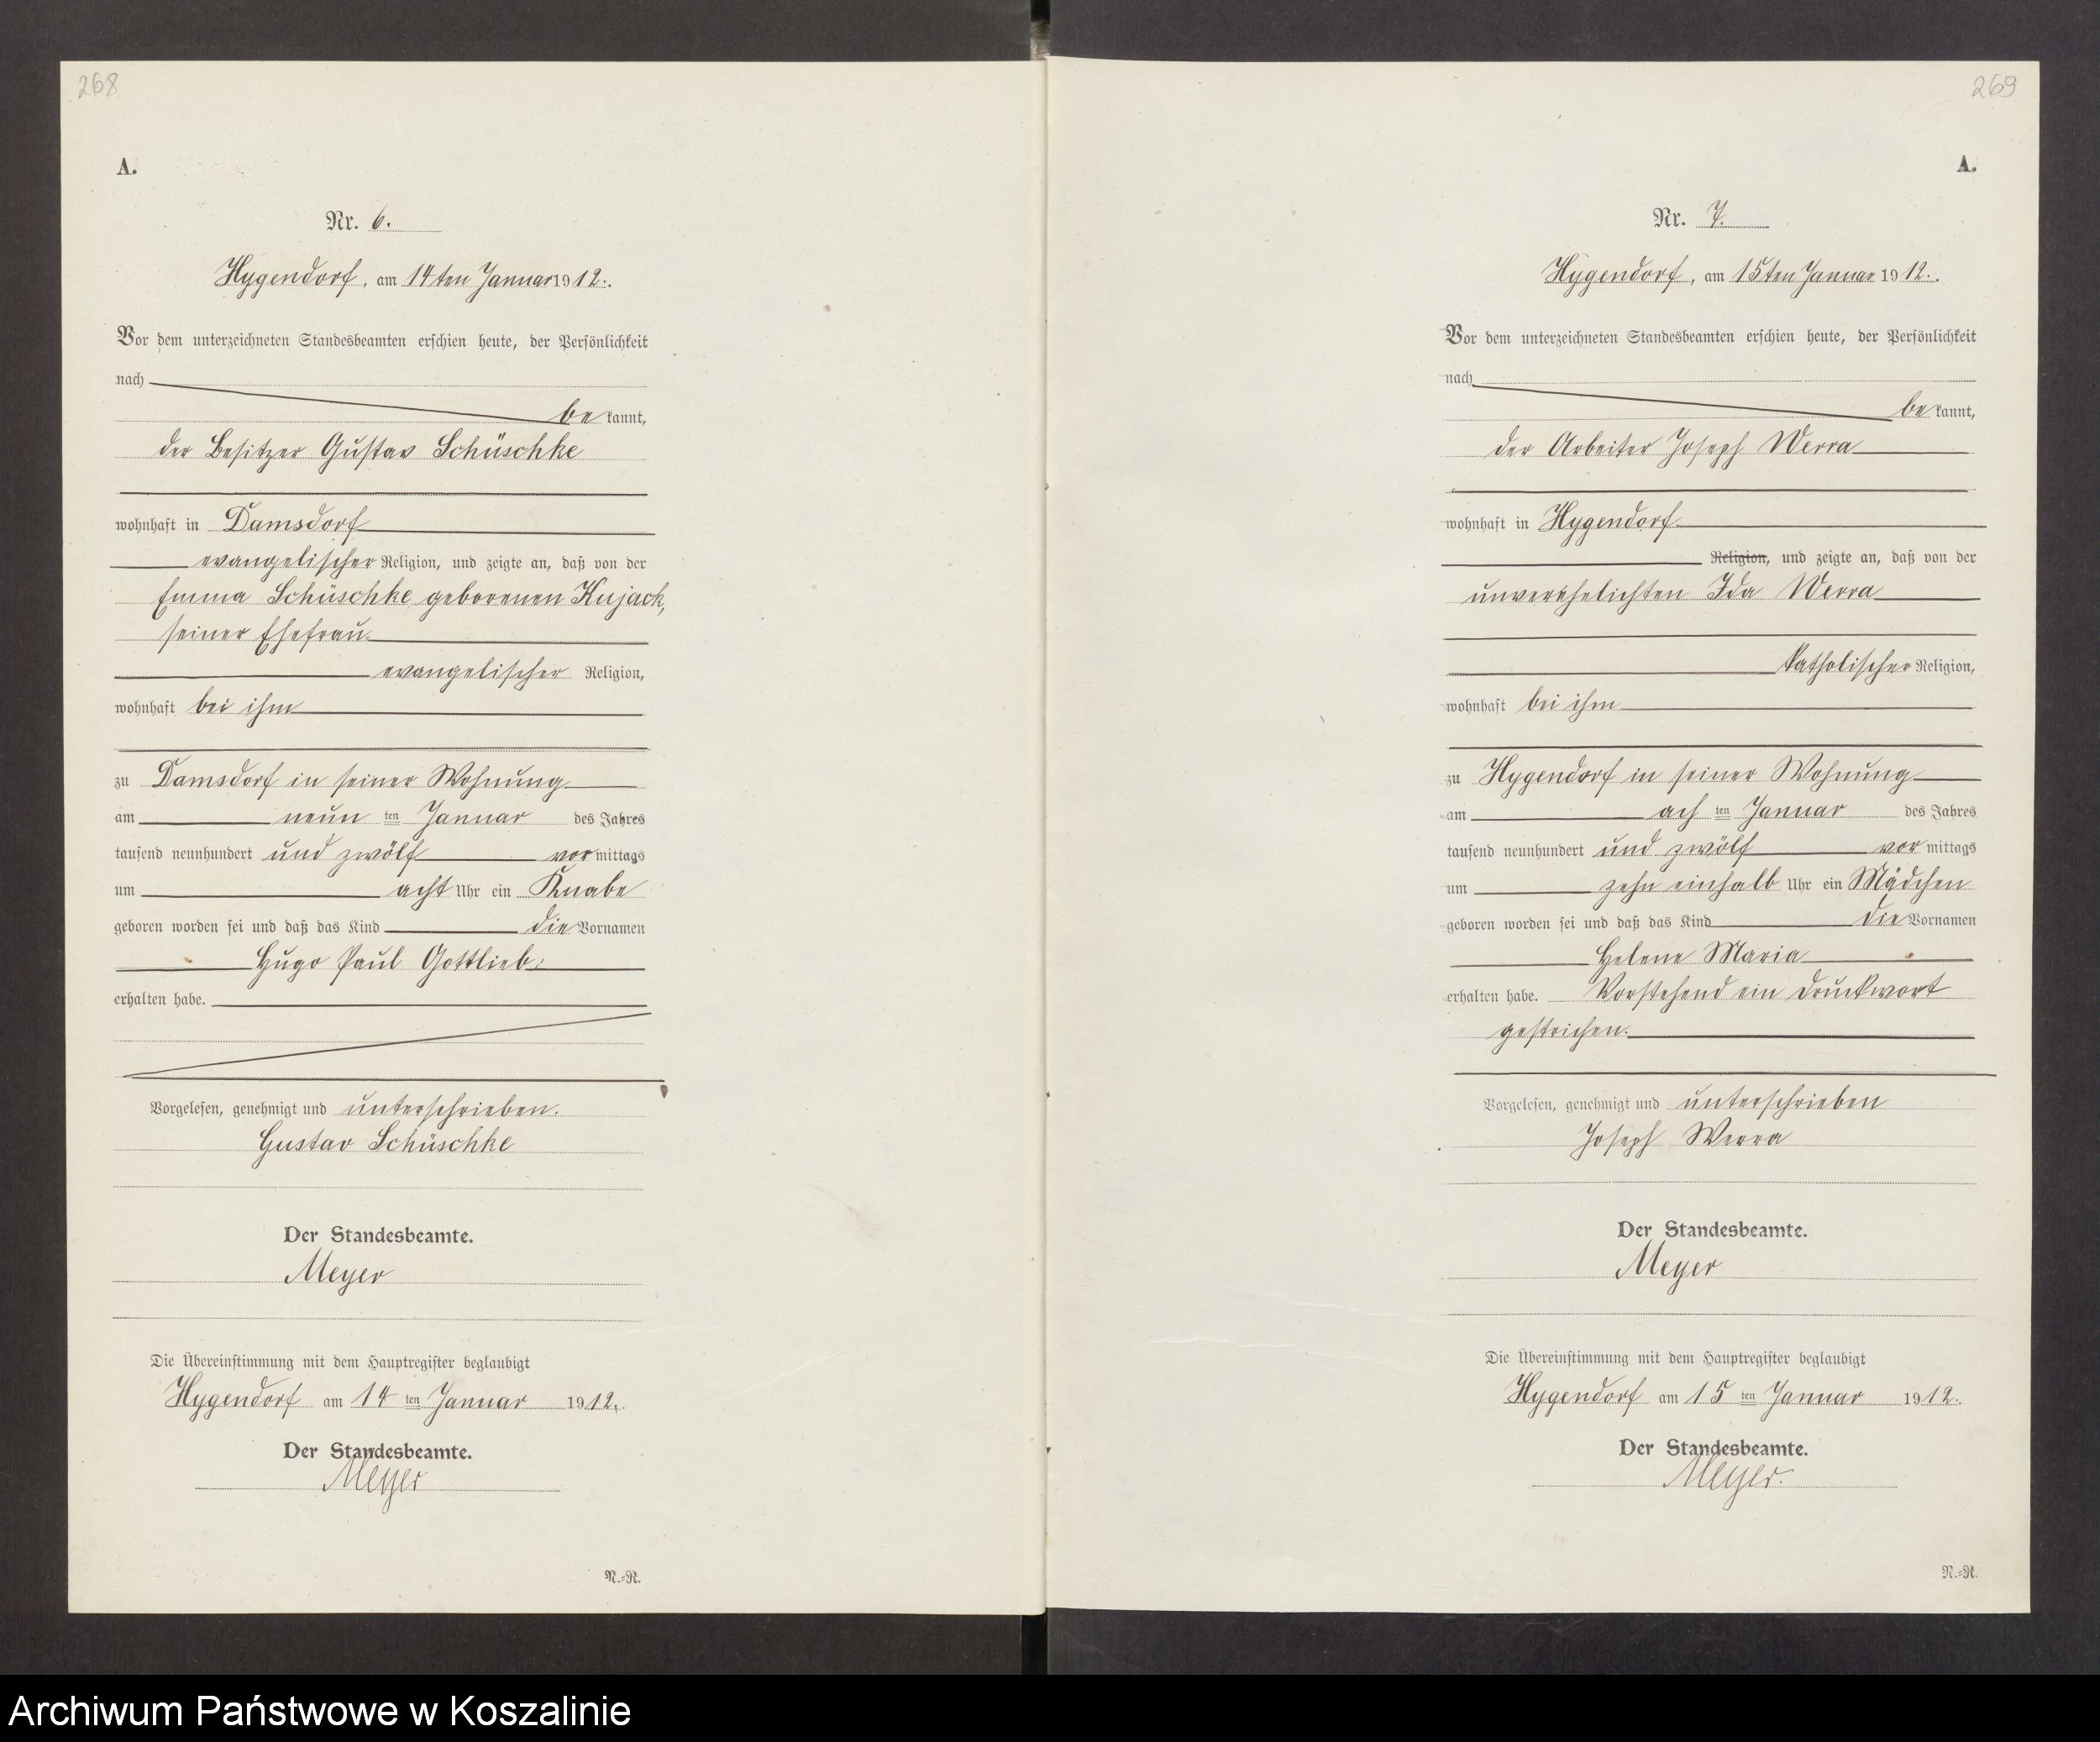 268
A.
Nr. 6.
Hygendorf, am 14ten Januar 1912.
Vor dem unterzeichneten Standesbeamten erschien heute, der Persönlichkeit
nach
be kannt,
der Besitzer Gustav Schüschke
wohnhaft in Damsdorf
evangelischer Religion, und zeigte an, daß von der
Emma Schüschke geborenen Kujack,
seiner Ehefrau
evangelischer Religion,
wohnhaft bei ihm
zu Damsdorf in seiner Wohnung
am neun ten Januar des Jahres
tausend neunhundert und zwölf vor mittags
um acht Uhr ein Knabe
geboren worden sei und daß das Kind die Vornamen
Hugo Paul Gottlieb
erhalten habe.
Vorgelesen, genehmigt und unterschrieben.
Gustav Schüschke
Der Standesbeamte.
Meyer
Die Übereinstimmung mit dem Hauptregister beglaubigt
Hygendorf am 14 ten Januar 1912.
Der Standesbeamte.
Meyer
N.-R.
269
A.
Nr. 7.
Hygendorf, am 15ten Januar 1912.
Vor dem unterzeichneten Standesbeamten erschien heute, der Persönlichkeit
nach
be kannt,
der Arbeiter Joseph Werra
wohnhaft in Hygendorf
Religion, und zeigte an, daß von der
unverehelichten Ida Werra
katholischer Religion,
wohnhaft bei ihm
zu Hygendorf in seiner Wohnung
am ach ten Januar des Jahres
tausend neunhundert und zwölf vor mittags
um zehn einhalb Uhr ein Mädchen
geboren worden sei und daß das Kind die Vornamen
Helene Maria
erhalten habe. Vorstehend ein Druckwort
gestrichen.
Vorgelesen, genehmigt und unterschrieben
Joseph Werra
Der Standesbeamte.
Meyer
Die Übereinstimmung mit dem Hauptregister beglaubigt
Hygendorf am 15 ten Januar 1912.
Der Standesbeamte.
Meyer.
N.-R.
Archiwum Państwowe w Koszalinie